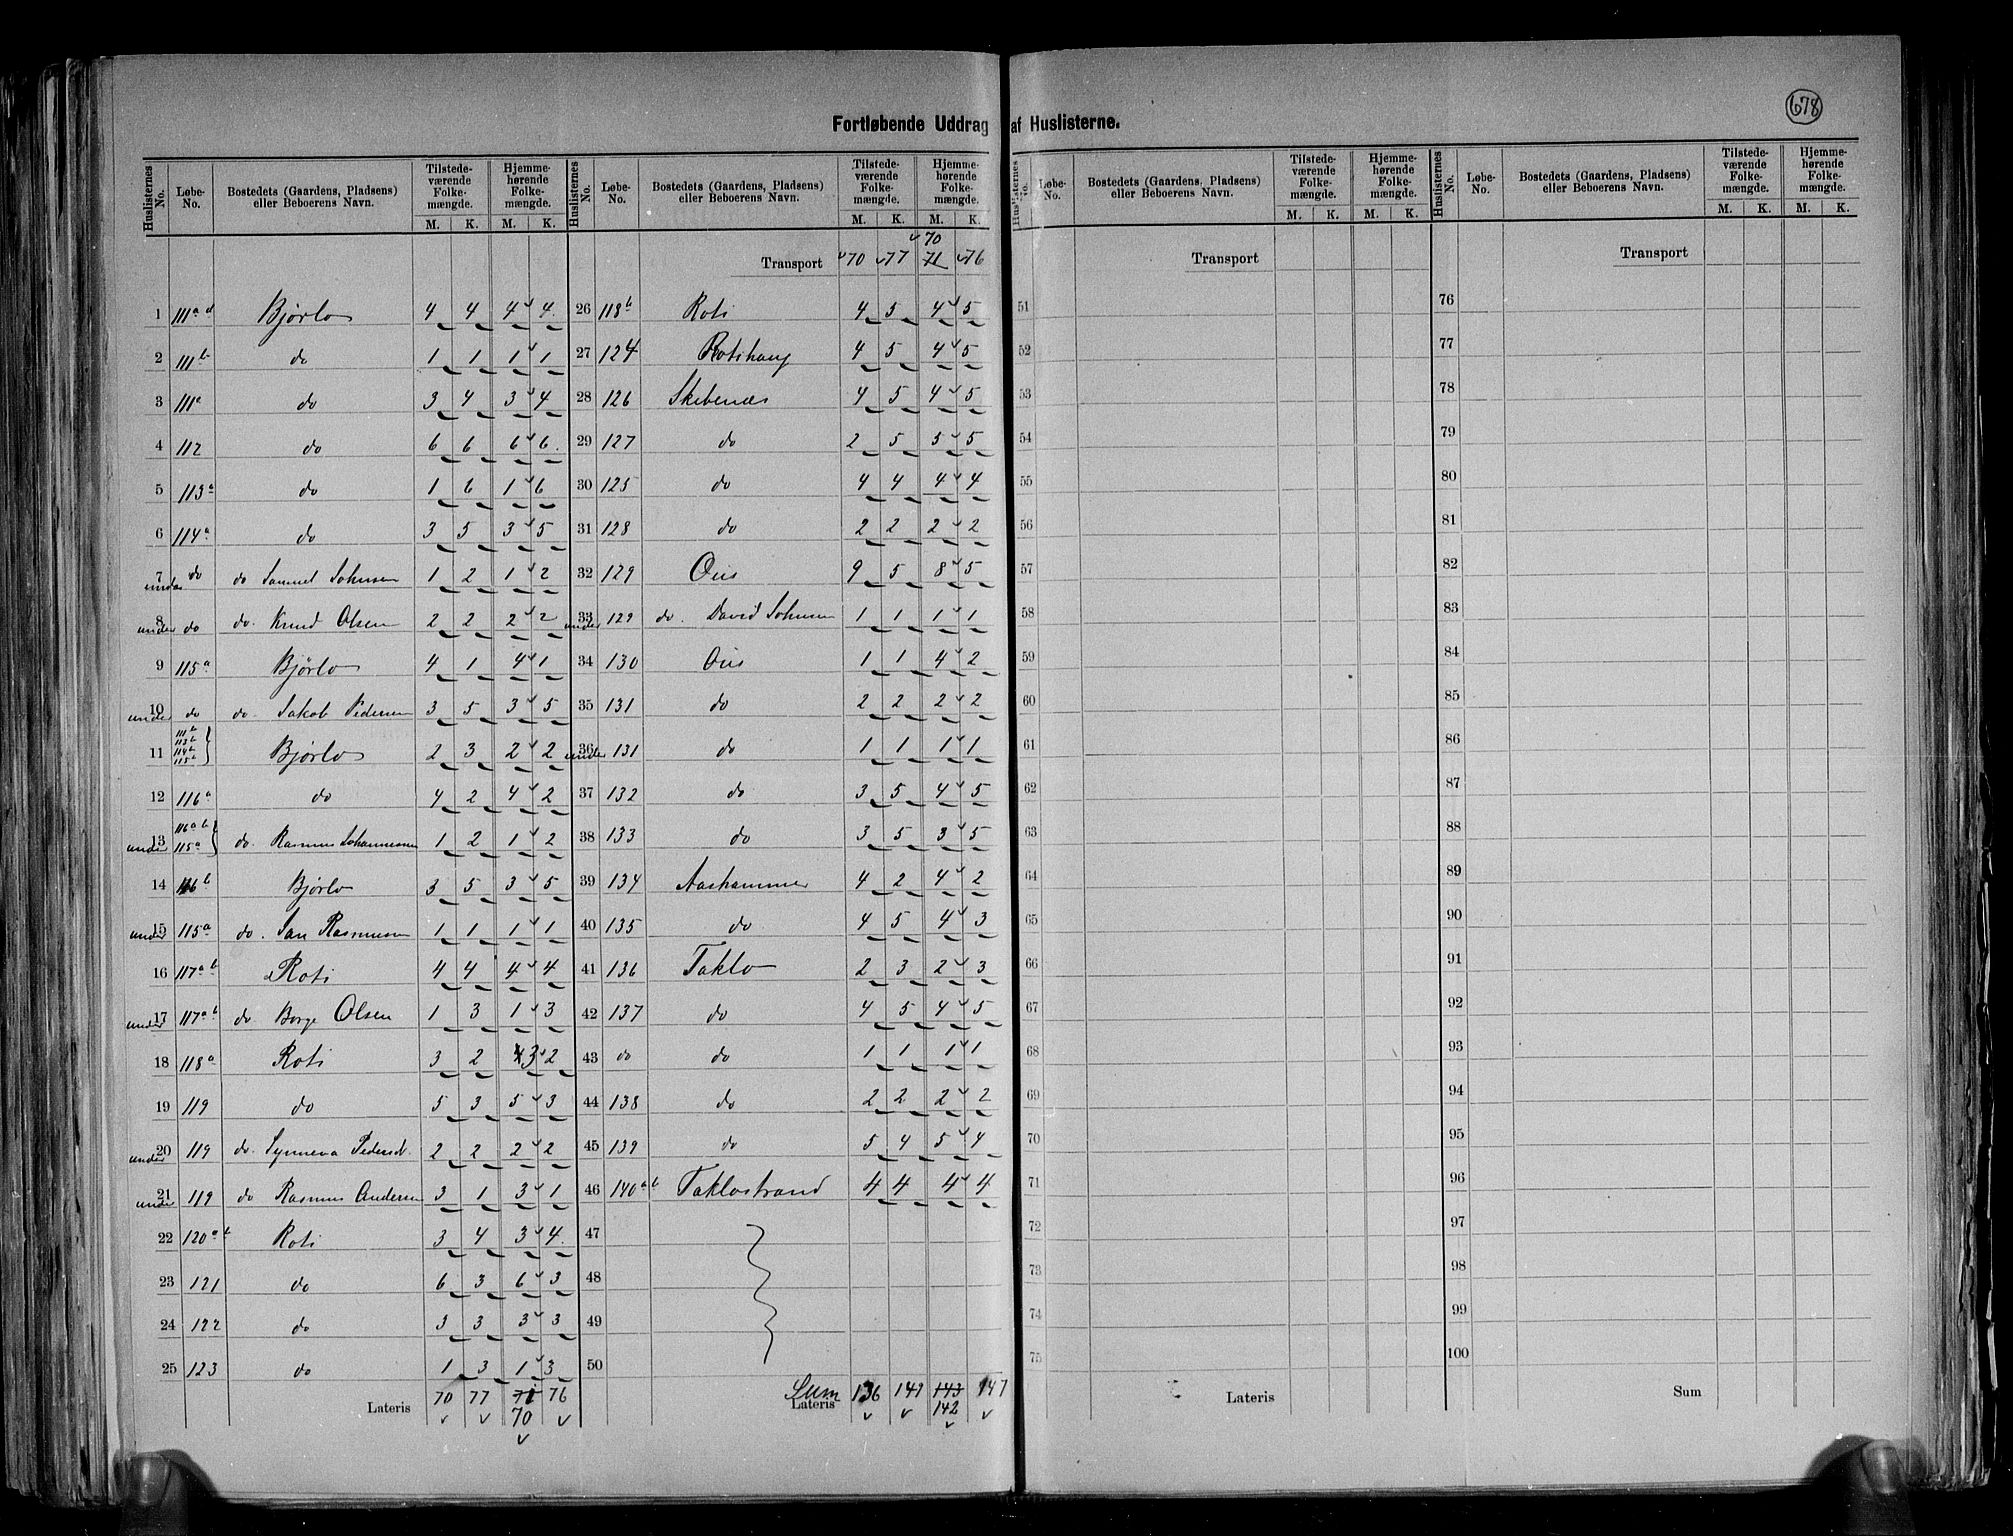 678
Fortløbende Uddrag af Huslisterne.
Huslisternes No. Løbe-No. Bostedets (Gaardens, Pladsens) eller Beboerens Navn. Tilstedeværende Folkemængde. M. K. Hjemmehørende Folkemængde. M. K.
1 111 a d Bjørlo 4 4 4 4
2 111 b do 1 1 1 1
3 111 a do 3 4 3 4
4 112 do 6 6 6 6
5 113 a do 1 6 1 6
6 114 a do 3 5 3 5
7 under do do Samuel Johnsen 1 2 1 2
8 under do do. Knud Olsen 2 2 2 2
9 115 a Bjørlo 4 1 4 1
10 under do do. Jakob Pedersen 3 5 3 5
11 111 b 113 b 114 b 115 b } Bjørlo 2 3 2 2
12 116 a do 4 2 4 2
13 under 116 a b 115 a } do. Rasmus Johannesen 1 2 1 2
14 116 b Bjørlo 3 5 3 5
15 under 115 a do. Jan Rasmusen 1 1 1 1
16 117 a b Roti 4 4 4 4
17 under 117 a b do Børge Olsen 1 3 1 3
18 118 a Roti 3 2 4 3 2
19 119 do 5 3 5 3
20 under 119 do. Synneva Pedersd. 2 2 2 2
21 under 119 do Rasmus Andersen 3 1 3 1
22 120 a b Roti 3 4 3 4
23 121 do 6 3 6 3
24 122 do 3 3 3 3
25 123 do 1 3 1 3
Lateris 70 77 71 76
70
Huslisternes No. Løbe-No. Bostedets (Gaardens, Pladsens) eller Beboerens Navn. Tilstedeværende Folkemængde. M. K. Hjemmehørende Folkemængde. M. K.
70
Transport 70 77 71 76
26 118 b Roti 4 5 4 5
27 124 Rotihaug 4 5 4 5
28 126 Skebenæs 4 5 4 5
29 127 do 2 5 5 5
30 125 do 4 4 4 4
31 128 do 2 2 2 2
32 129 Ous 9 5 8 5
33 under 129 do. David Johnsen 1 1 1 1
34 130 Ous 1 1 4 2
35 131 do 2 2 2 2
36 under 131 do 1 1 1 1
37 132 do 3 5 4 5
38 133 do 3 5 3 5
39 134 Aashammer 4 2 4 2
40 135 do 4 5 4 3
41 136 Taklo 2 3 2 3
42 137 do 4 5 4 5
43 do do 1 1 1 1
44 138 do 2 2 2 2
45 139 do 5 4 5 4
46 140 a b Taklostrand 4 4 4 4
47
48
49
50
Sum Lateris 136 149 143 147
142
Huslisternes No. Løbe-No. Bostedets (Gaardens, Pladsens) eller Beboerens Navn. Tilstedeværende Folkemængde. M. K. Hjemmehørende Folkemængde. M. K.
Transport
51
52
53
54
55
56
57
58
59
60
61
62
63
64
65
66
67
68
69
70
71
72
73
74
75
Lateris
Huslisternes No. Løbe-No. Bostedets (Gaardens, Pladsens) eller Beboerens Navn. Tilstedeværende Folkemængde. M. K. Hjemmehørende Folkemængde. M. K.
Transport
76
77
78
79
80
81
82
83
84
85
86
87
88
89
90
91
92
93
94
95
96
97
98
99
100
Sum